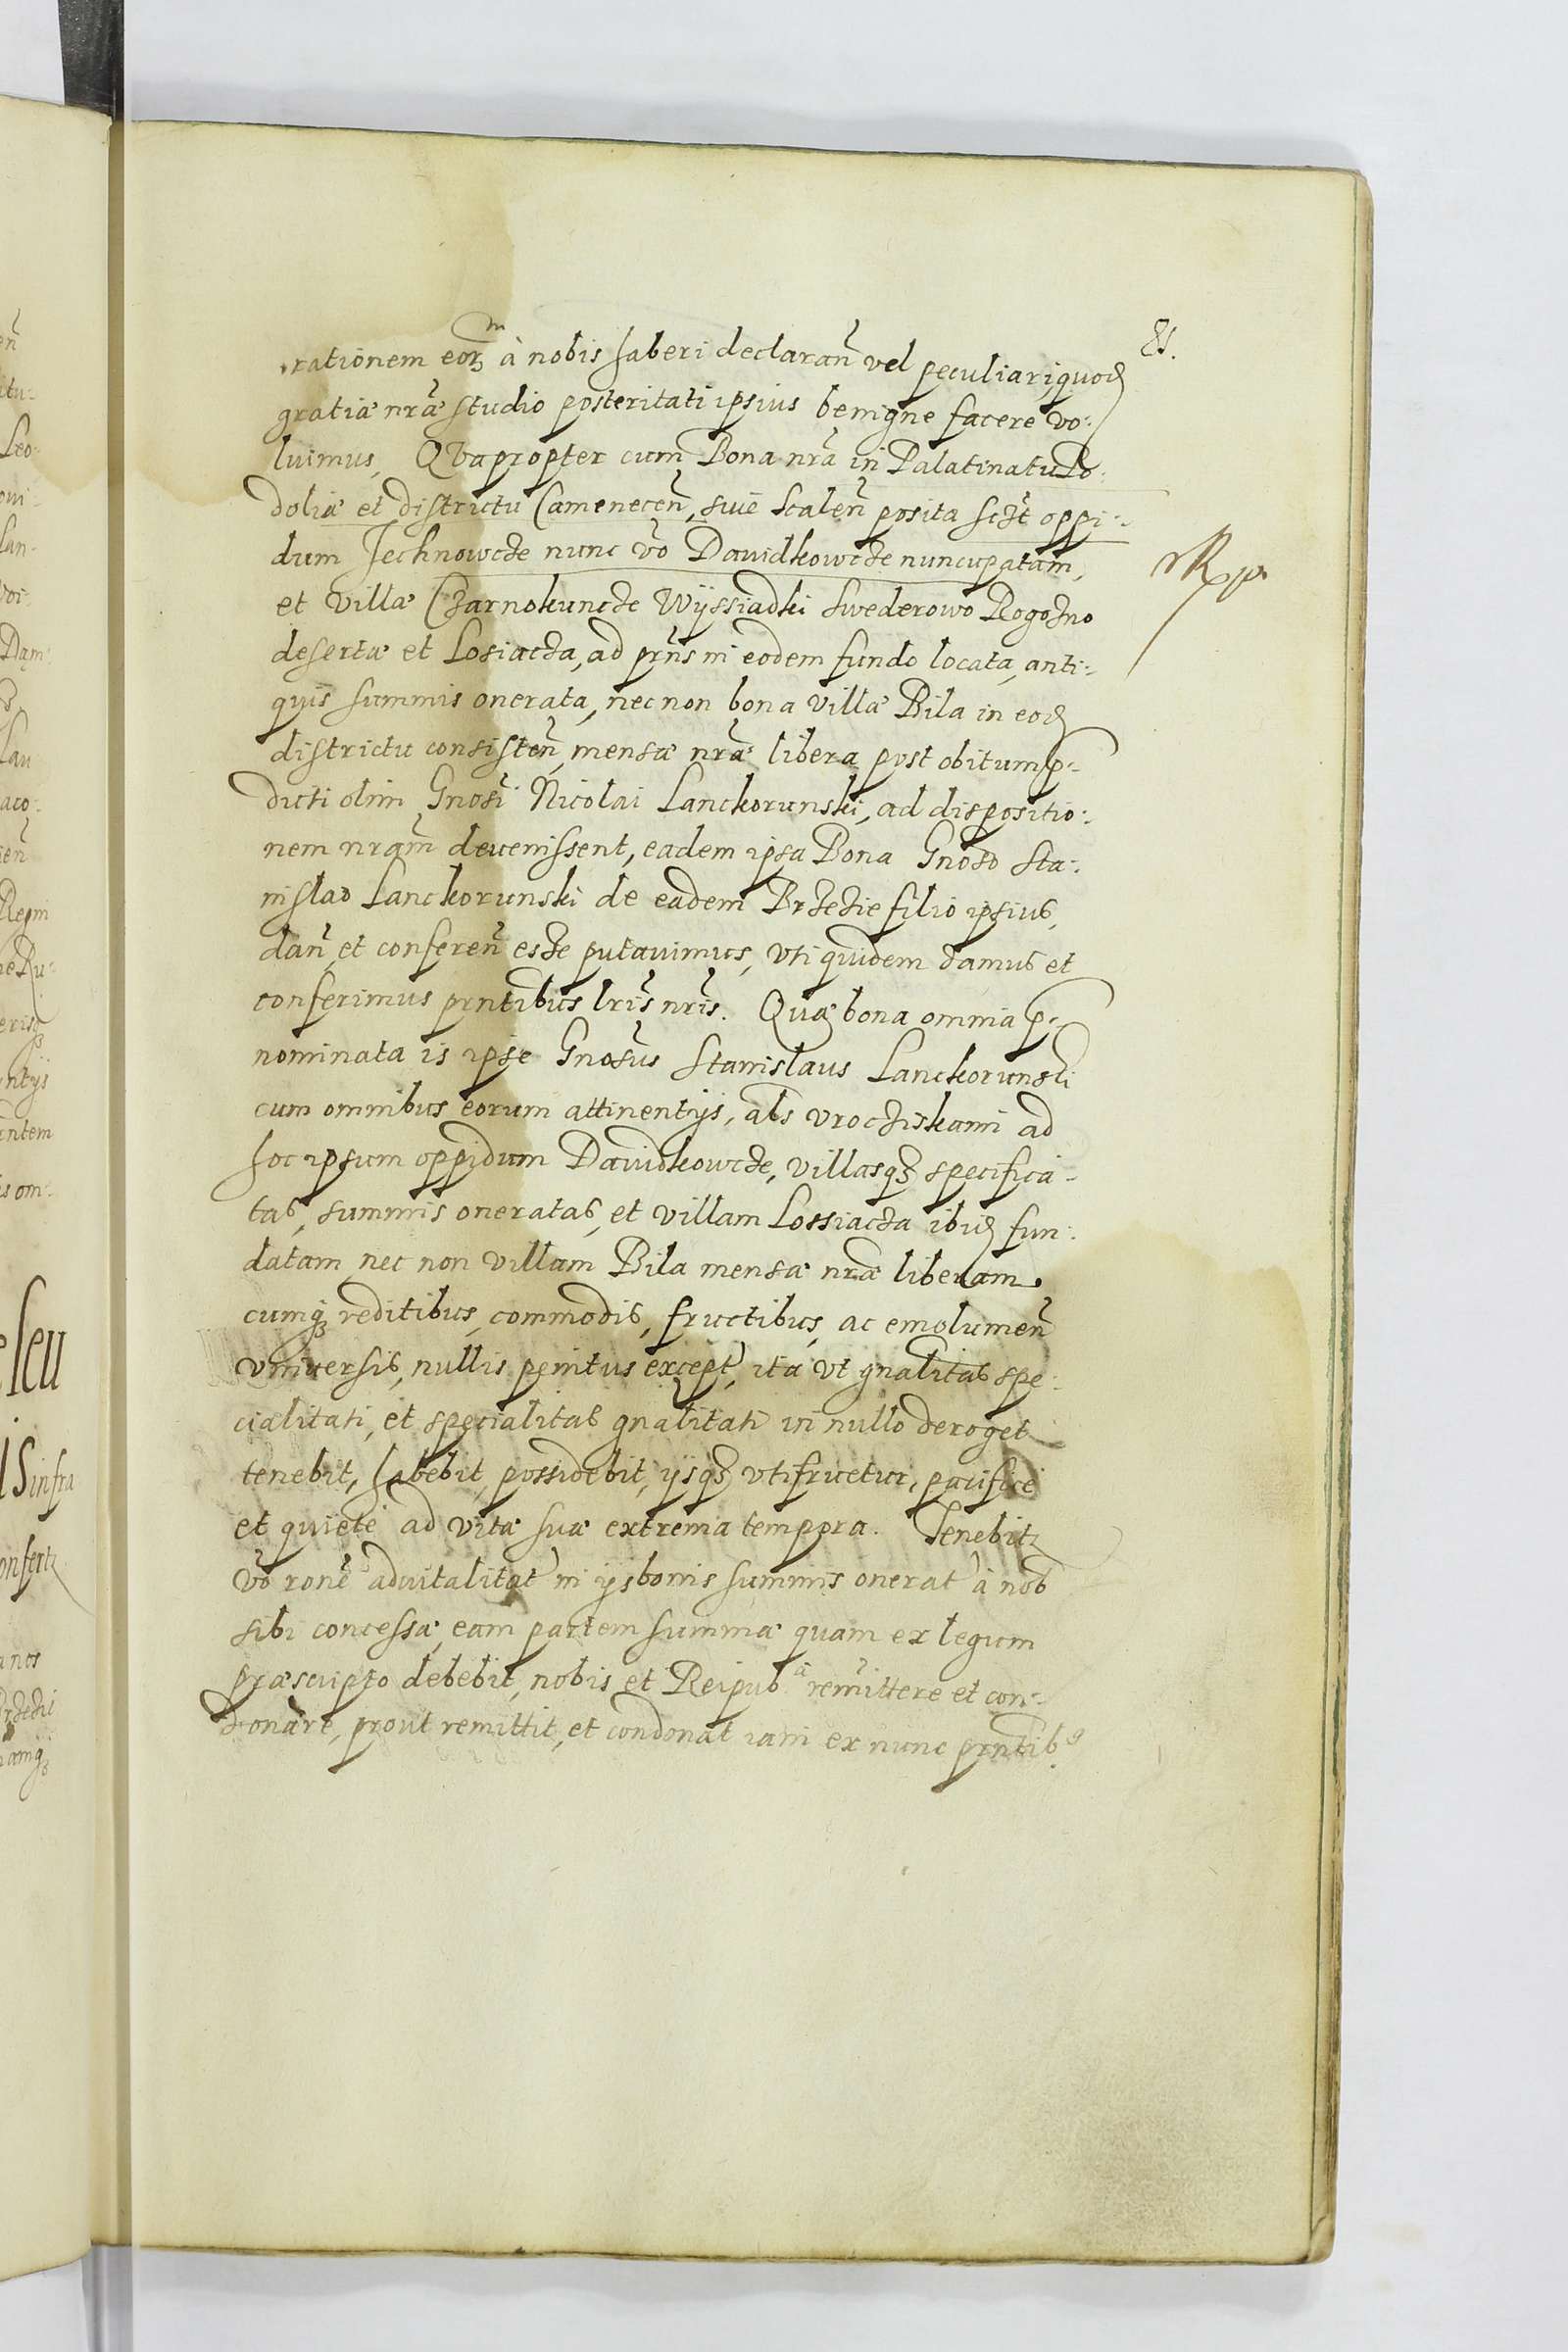 81.
rationem eorm à nobis haberi declaran̄ vel peculiari quoď
gratiæ nrǣ studio posteritati ipsius benigne facere vo:
luimus, Qvapropter cum Bona nrā in Palatinatu Po:
doliæ et districtu Camenecen̄, siue Scalen̄ posita sczt oppi:
dum Jechnowcze nunc vō Dawidkowcze nuncupatam,
et villæ Czarnokuncze Wyssiadki Swederowo Rogozno
desertæ et Losiacza, ad prn̄s in eodem fundo locata, anti:
quis summis onerata, nec non bona villæ Bila in eoď
districtu consisten̄, mensæ nrǣ libera post obitum p:
dicti olim Gnosi Nicolai Lanckorunski, ad dispositio:
nem nram̄ deuenissent, eadem ipsa Bona Gnoso Sta:
nislao Lanckorunski de eadem Brzezie filio ipsius,
dan̄ et conferen̄ esse putauimus, vti quidem damus et
conferimus prntibus lris̄ nris̄. Quæ bona omnia p:
nominata is ipse Gnosus Stanislaus Lanckorunski
cum omnibus eorum attinentijs, als vrocziskami ad
hoc ipsum oppidum Dawidkowcze, villasqȝ specifica:
tas, summis oneratas, et villam Lossiacza ibiď fun:
datam nec non villam Bila mensæ nræ liberam
cumqȝ reditibus, commodis, fructibus, ac emolumen̄
vniuersis, nullis penitus except, ita vt gnalitas spe:
cialitati, et specialitas gnalitati in nullo deroget
tenebit, habebit, possidebit, ijsqȝ vtifruetur, pacifice
et quiete ad vitæ suæ extrema tempora. Tenebitr
vō ronē aduitalitat in ijs bonis summis onerat à nob
sibi concessæ, eam partem summæ quam ex legum
præscripto debebit, nobis et Reipub. remittere et con:
donare, prout remittit, et condonat iam ex nunc prntibs